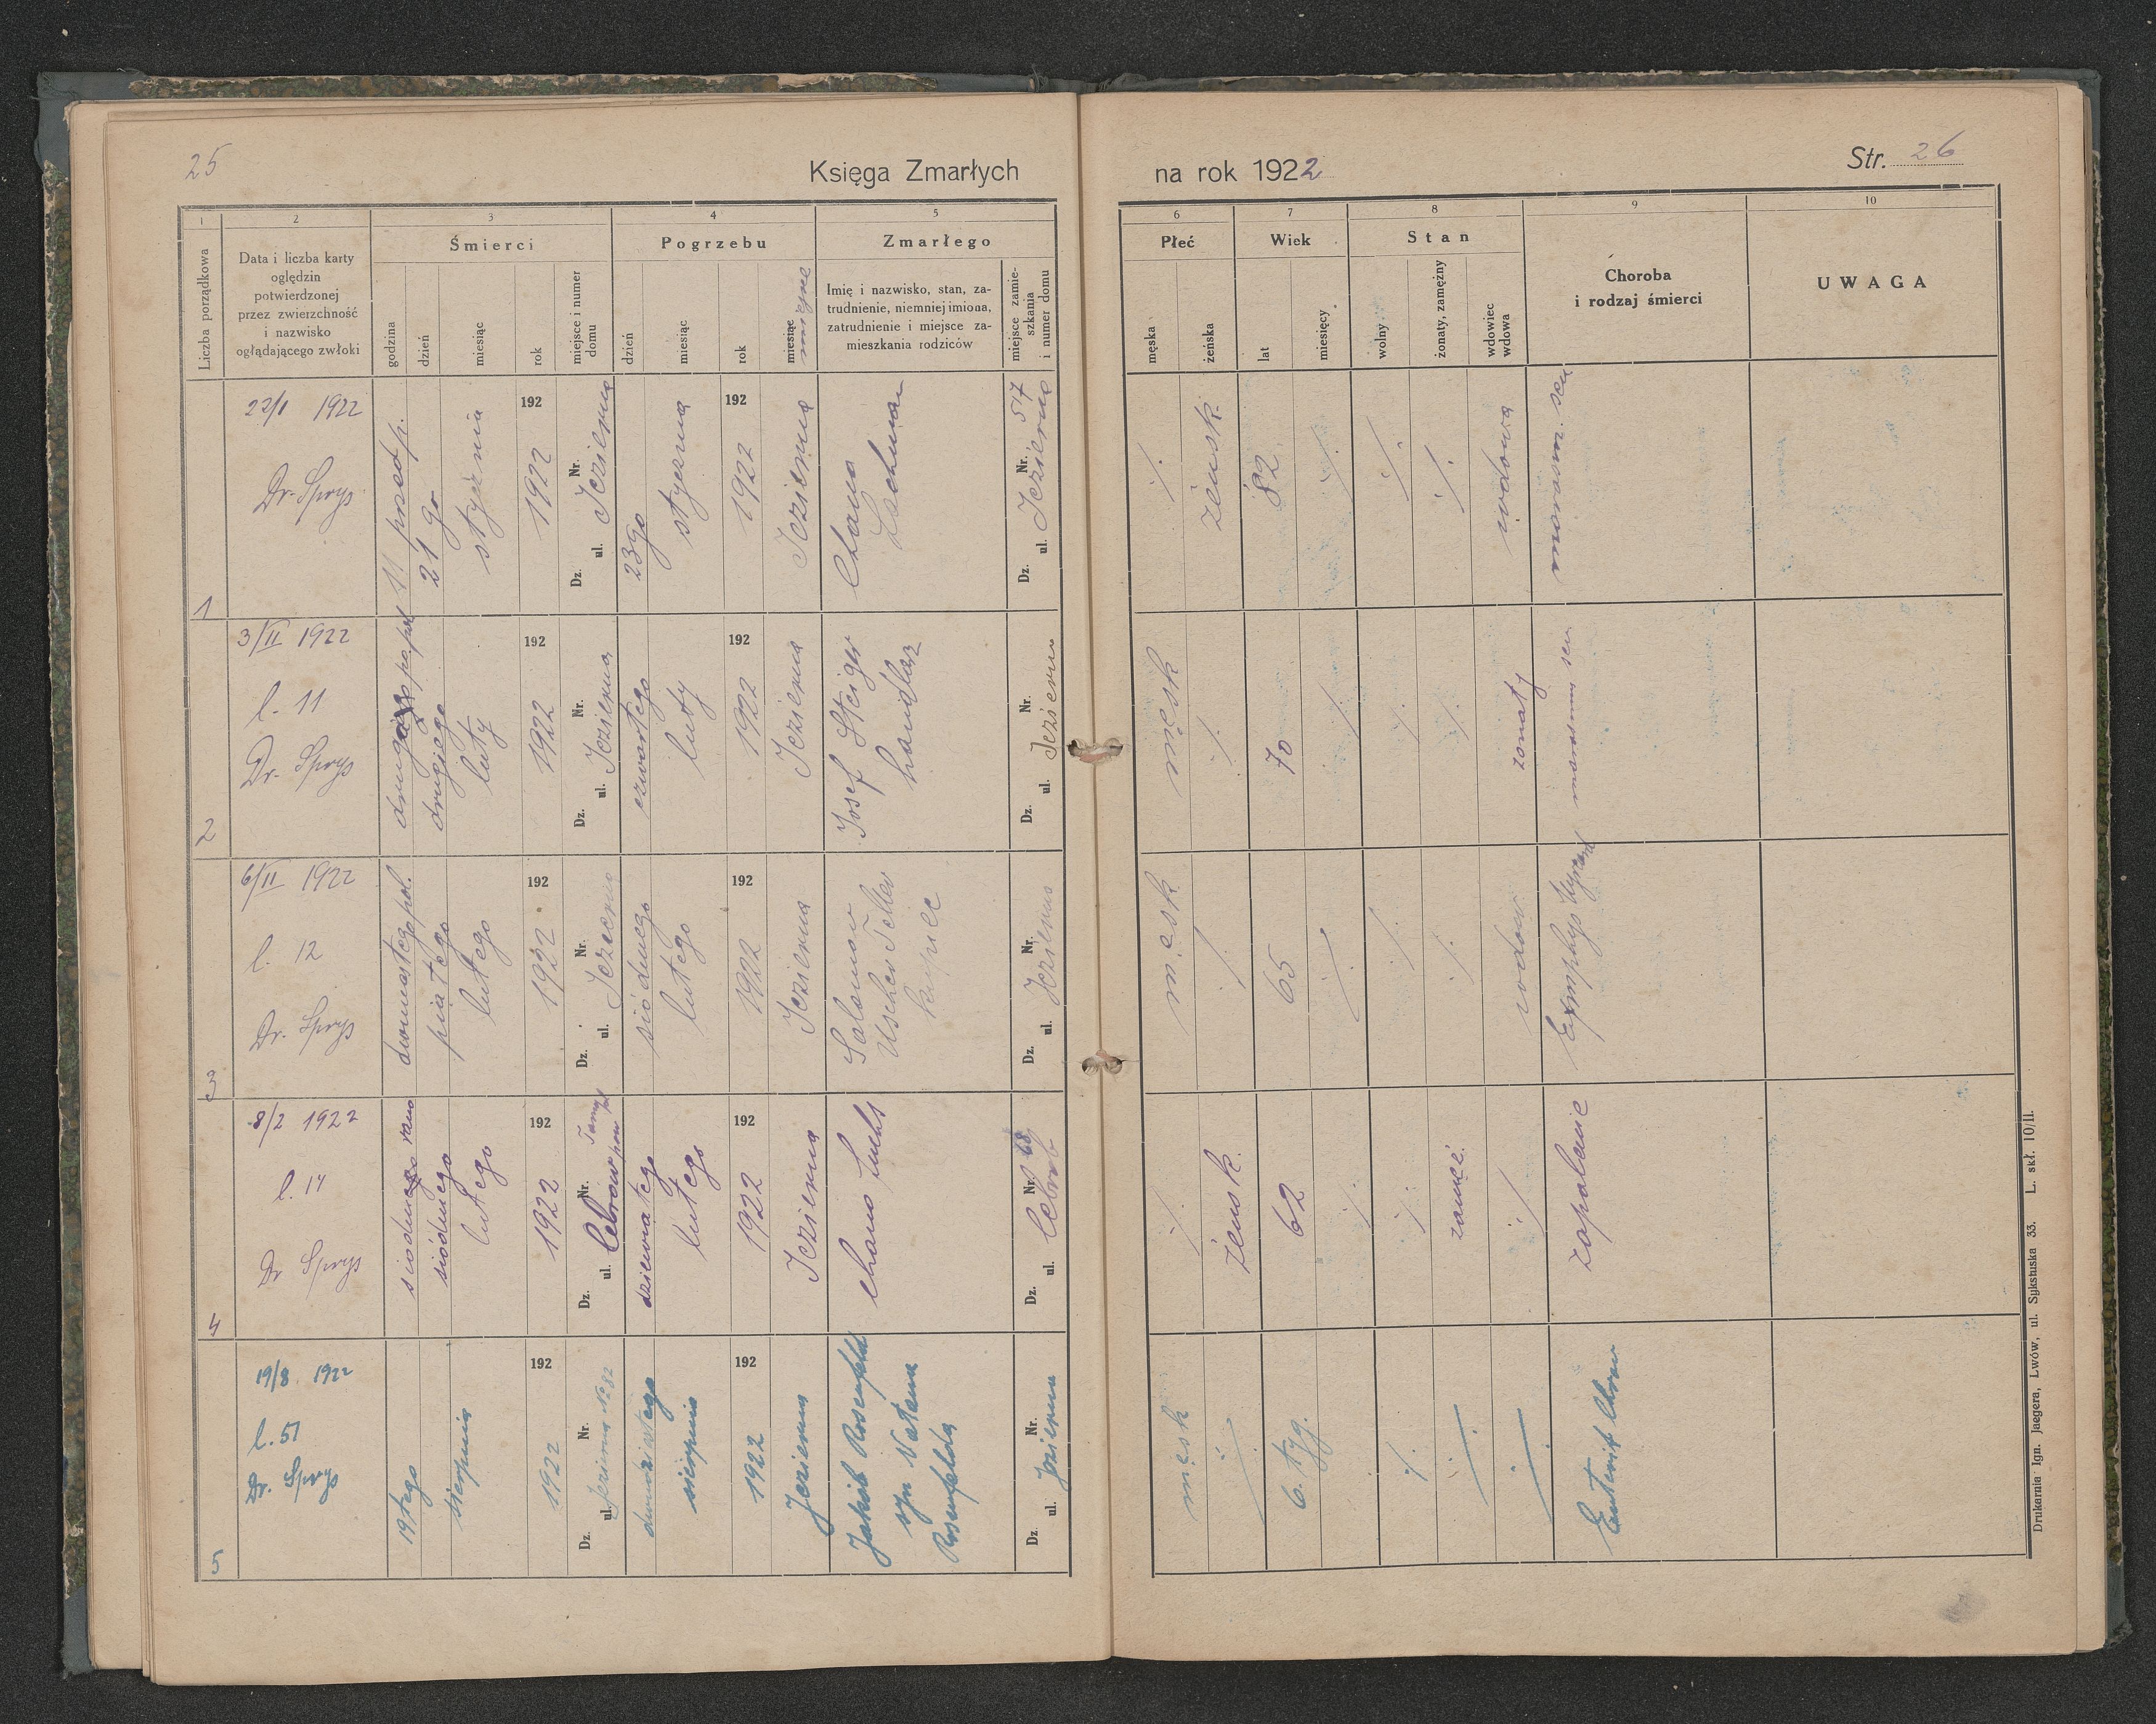 25
Księga Zmarłych
na rok 1922
Str. 26
1
2
3
4
5
6
7
8
9
10
Liczba porządkowa
Data i liczba karty
oględzin
potwierdzonej
przez zwierzchność
i nazwisko
oglądającego zwłoki
Śmierci
godzina
dzień
miesiąc
rok
miejsce i numer
domu
Pogrzebu
dzień
miesiąc
rok
miesiąc
miejsce
Zmarłego
Imię i nazwisko, stan, za-
trudnienie, niemniej imiona,
zatrudnienie i miejsce za-
mieszkania rodziców
miejsce zamie-
szkania
i numer domu
Płeć
męska
żeńska
Wiek
lat
miesięcy
Stan
wolny
żonaty, zamężny
wdowiec
wdowa
Choroba
i rodzaj śmierci
UWAGA
1
22/1 1922
Dr. Sprys
11 przed p.
21 go
stycznia
192
1922
Dz. ul. Nr.
Jezierna
23go
stycznia
192
1922
Jezierna
Chana
Lachman
Dz. ul. Nr. 517
Jezierna
./.
żeńsk.
82
./.
./.
./.
wdowa
marasm. sen
2
3/II 1922
l. 11
Dr. Sprys
drugiego
luty
192
1922
Dz. ul. Nr.
Jezierna
czwartego
luty
192
1922
Jezierna
Josef Steiger
handlarz
Dz. ul. Nr.
Jezierna
męsk
./.
70
./.
./.
./.
żonaty
marasmus sen
3
6/II 1922
l. 12
Dr. Sprys
dwunastego poł.
piątego
lutego
192
1922
Dz. ul. Nr.
Jezierna
siódmego
lutego
192
1922
Jezierna
Salamon
Uscher Teller
kupiec
Dz. ul. Nr.
Jezierna
męsk
./.
65
./.
./.
./.
wdow
4
8/2 1922
l. 14
Dr Sprys
siódmego rano
siódmego
lutego
192
1922
Dz. ul. Nr.
Cebrów
dziewiątego
lutego
192
1922
Jezierna
Chana Fuchs
Dz. ul. Nr. 68
Cebrów
./.
żeńsk.
62
./.
./.
zamęż.
./.
zapalenie
5
19/8 1922
l. 51
Dr. Sprys
19tego
sierpnia
192
1922
Dz. ul. Nr.
Jezierna No 82
sierpnia
192
1922
Jezierna
Jakób Rosenfeld
syn Natana
Rosenfelda
Dz. ul. Nr.
Jezierna
męsk
./.
6. tyg.
./.
./.
./.
Enterit Chron
Drukarnia Ign. Jaegera, Lwów, ul. Sykstuska 33. L. skł. 10/II.